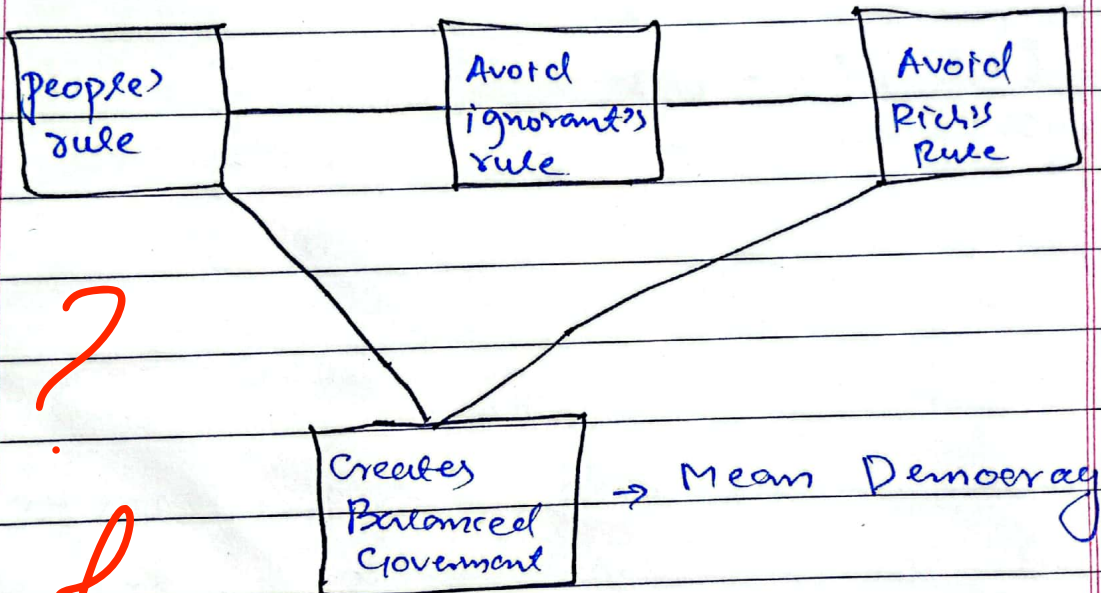 people's
rule
Avoid
ignorant's
rule
Avoid
Rich's
Rule
?
Creates
Balanced
Goverment
→ Mean Democray